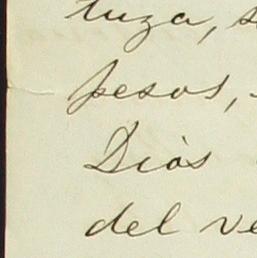 tuza, s
pesos,
Diós
del ve